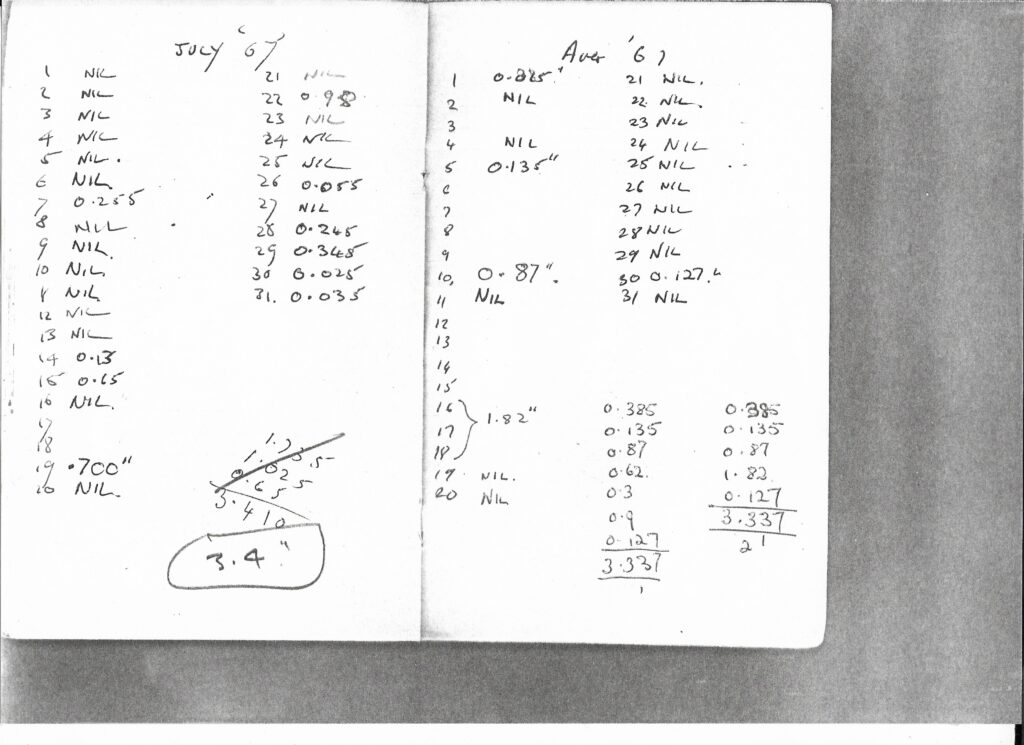 JULY '67
1 NIL
2 NIL
3 NIL
4 NIL
5 NIL.
6 NIL.
7 0.255
8 NIL
9 NIL.
10 NIL.
11 NIL
12 NIL
13 NIL
14 0.13
15 0.65
16 NIL.
17
18
19 .700"
20 NIL.
21 NIL
22 0.98
23 NIL
24 NIL
25 NIL
26 0.055
27 NIL
28 0.245
29 0.345
30 0.025
31. 0.035
3.410
3.4"
'67
1 0.385"
2 NIL
3
4 NIL
5 0.135"
6
7
8
9
10, 0.87".
11 NIL
12
13
14
15
16
17 1.82"
18
19 NIL.
20 NIL
21 NIL.
22 NIL.
23 NIL
24 NIL
25 NIL
26 NIL
27 NIL
28 NIL
29 NIL
30 0.127."
31 NIL
0.385
0.135
0.87
0.62.
0.3
0.9
0.127
3.337
1
0.385
0.135
0.87
1.82
0.127
3.337
2 1